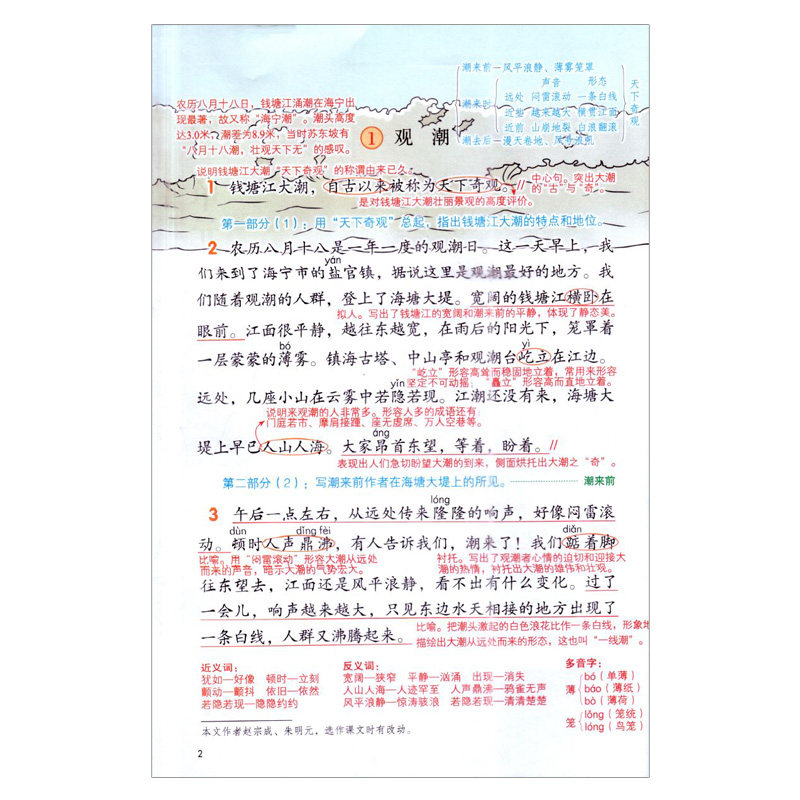 潮来前—风平浪静、薄雾笼罩
声音 形态
潮来时
远处 闷雷滚动 一条白线
近些 越来越大 横贯江面
近前 山崩地裂 白浪翻滚
潮去后—漫天卷地、风号浪吼
天下奇观
农历八月十八日，钱塘江涌潮在海宁出
现最著，故又称“海宁潮”。潮头高度
达3.0米，潮差为8.9米，当时苏东坡有
“八月十八潮，壮观天下无”的感叹。
1 观潮
说明钱塘江大潮“天下奇观”的称谓由来已久。
1 钱塘江大潮，自古以来被称为天下奇观。//
中心句。突出大潮
的“古”与“奇”。
是对钱塘江大潮壮丽景观的高度评价。
第一部分（1）：用“天下奇观”总起，指出钱塘江大潮的特点和地位。
2 农历八月十八是一年一度的观潮日。这一天早上，我
yán
们来到了海宁市的盐官镇，据说这里是观潮最好的地方。我
们随着观潮的人群，登上了海塘大堤。宽阔的钱塘江横卧在
拟人。写出了钱塘江的宽阔和潮来前的平静，体现了静态美。
眼前。江面很平静，越往东越宽，在雨后的阳光下，笼罩着
bó yì
一层蒙蒙的薄雾。镇海古塔、中山亭和观潮台屹立在江边。
“屹立”形容高耸而稳固地立着，常用来形容
yǐn 坚定不可动摇；“矗立”形容高而直地立着。
远处，几座小山在云雾中若隐若现。江潮还没有来，海塘大
说明来观潮的人非常多。形容人多的成语还有：
门庭若市、摩肩接踵、座无虚席、万人空巷等。
áng
堤上早已人山人海。大家昂首东望，等着，盼着。//
表现出人们急切盼望大潮的到来，侧面烘托出大潮之“奇”。
第二部分（2）：写潮来前作者在海塘大堤上的所见。 潮来前
lóng
3 午后一点左右，从远处传来隆隆的响声，好像闷雷滚
dùn dǐng fèi diǎn
动。顿时人声鼎沸，有人告诉我们，潮来了！我们踮着脚
比喻。用“闷雷滚动”形容大潮从远处
而来的声音，暗示大潮的气势宏大。
衬托。写出了观潮者心情的迫切和迎接大
潮的热情，衬托出大潮的雄伟和壮观。
往东望去，江面还是风平浪静，看不出有什么变化。过了
一会儿，响声越来越大，只见东边水天相接的地方出现了
比喻。把潮头激起的白色浪花比作一条白线，形象地
一条白线，人群又沸腾起来。
描绘出大潮从远处而来的形态，这也叫“一线潮”。
近义词：
犹如—好像 顿时—立刻
颤动—颤抖 依旧—依然
若隐若现—隐隐约约
反义词：
宽阔—狭窄 平静—汹涌 出现—消失
人山人海—人迹罕至 人声鼎沸—鸦雀无声
风平浪静—惊涛骇浪 若隐若现—清清楚楚
多音字：
薄 bó（单薄）
báo（薄纸）
bò（薄荷）
笼 lǒng（笼统）
lóng（鸟笼）
本文作者赵宗成、朱明元，选作课文时有改动。
2